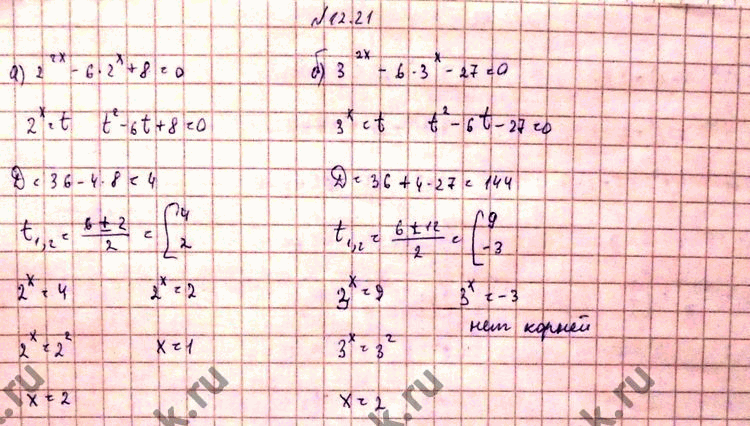 №12.21
а) 2^{2x} - 6·2^x + 8 = 0
2^x = t   t² - 6t + 8 = 0
D = 36 - 4·8 = 4
t₁,₂ = (6 ± 2)/2 = [4 2
2^x = 4   2^x = 2
2^x = 2²   x = 1
x = 2
б) 3^{2x} - 6·3^x - 27 = 0
3^x = t   t² - 6t - 27 = 0
D = 36 + 4·27 = 144
t₁,₂ = (6 ± 12)/2 = [9 -3
3^x = 9   3^x = -3
нет корней
3^x = 3²
x = 2
k.ru
k.ru
k.ru